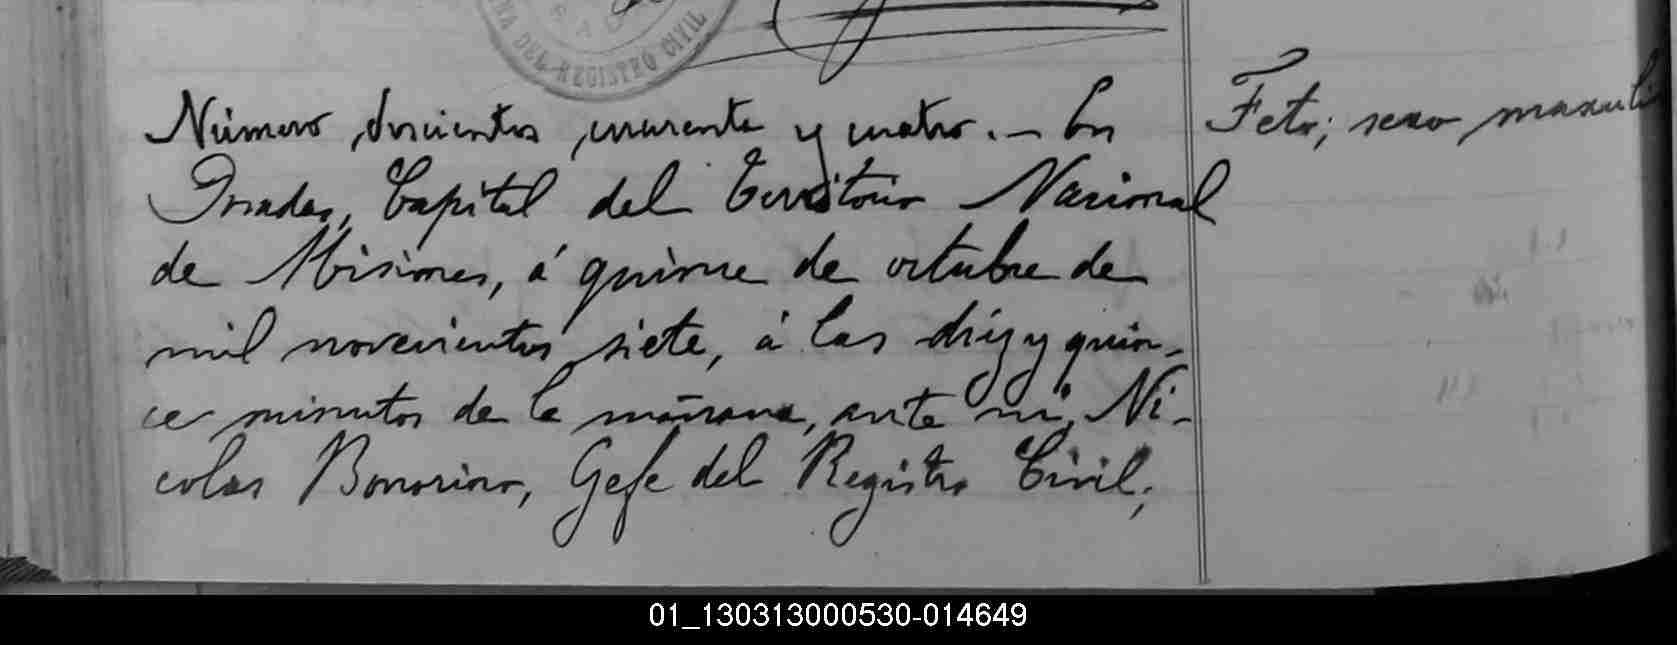 NA DEL REGISTRO CIVIL
Número doscientos cuarenta y cuatro.— En
Posadas, Capital del Territorio Nacional
de Misiones, á quince de octubre de
mil novecientos siete, á las diez y quin-
ce minutos de la mañana, ante mi, Ni-
colas Bonorino, Gefe del Registro Civil;
Feto; sexo masculi
01_130313000530-014649